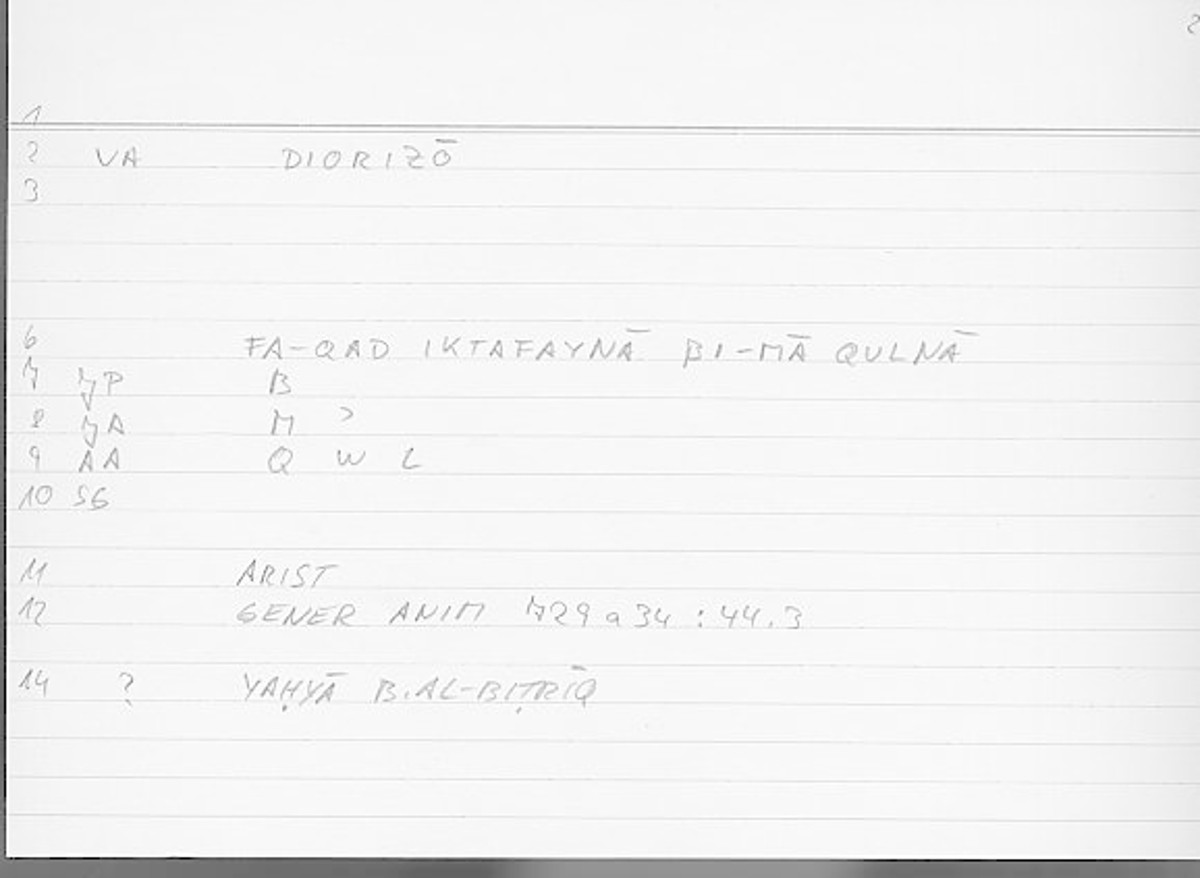 2
1
2 VA DIORIZŌ
3
6 FA-QAD IKTAFAYNĀ BI-MĀ QULNĀ
7 JP B
8 JA M ʾ
9 AA Q W L
10 SG
11 ARIST
12 GENER ANIM 729 a 34 : 44.3
14 ? YAḤYĀ B. AL-BIṬRĪQ